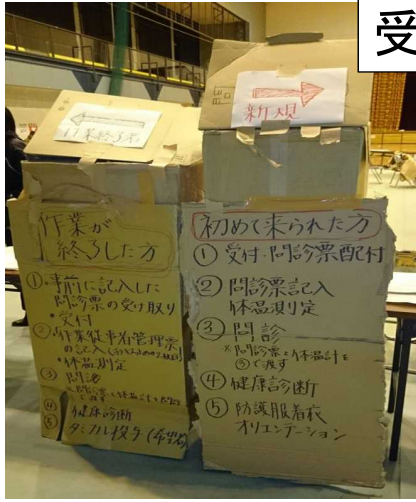 受
新規
作業が
終了した方
①事前に記入した
問診票の受け取り
・受付
②作業従事者管理票
の記入
・体温測定
③問診
④健康診断
⑤タミフル投与(希望者)
初めて来られた方
①受付・問診票配付
②問診票記入
体温測定
③問診
※問診票と体温計を
③で渡す
④健康診断
⑤防護服着衣
オリエンテーション